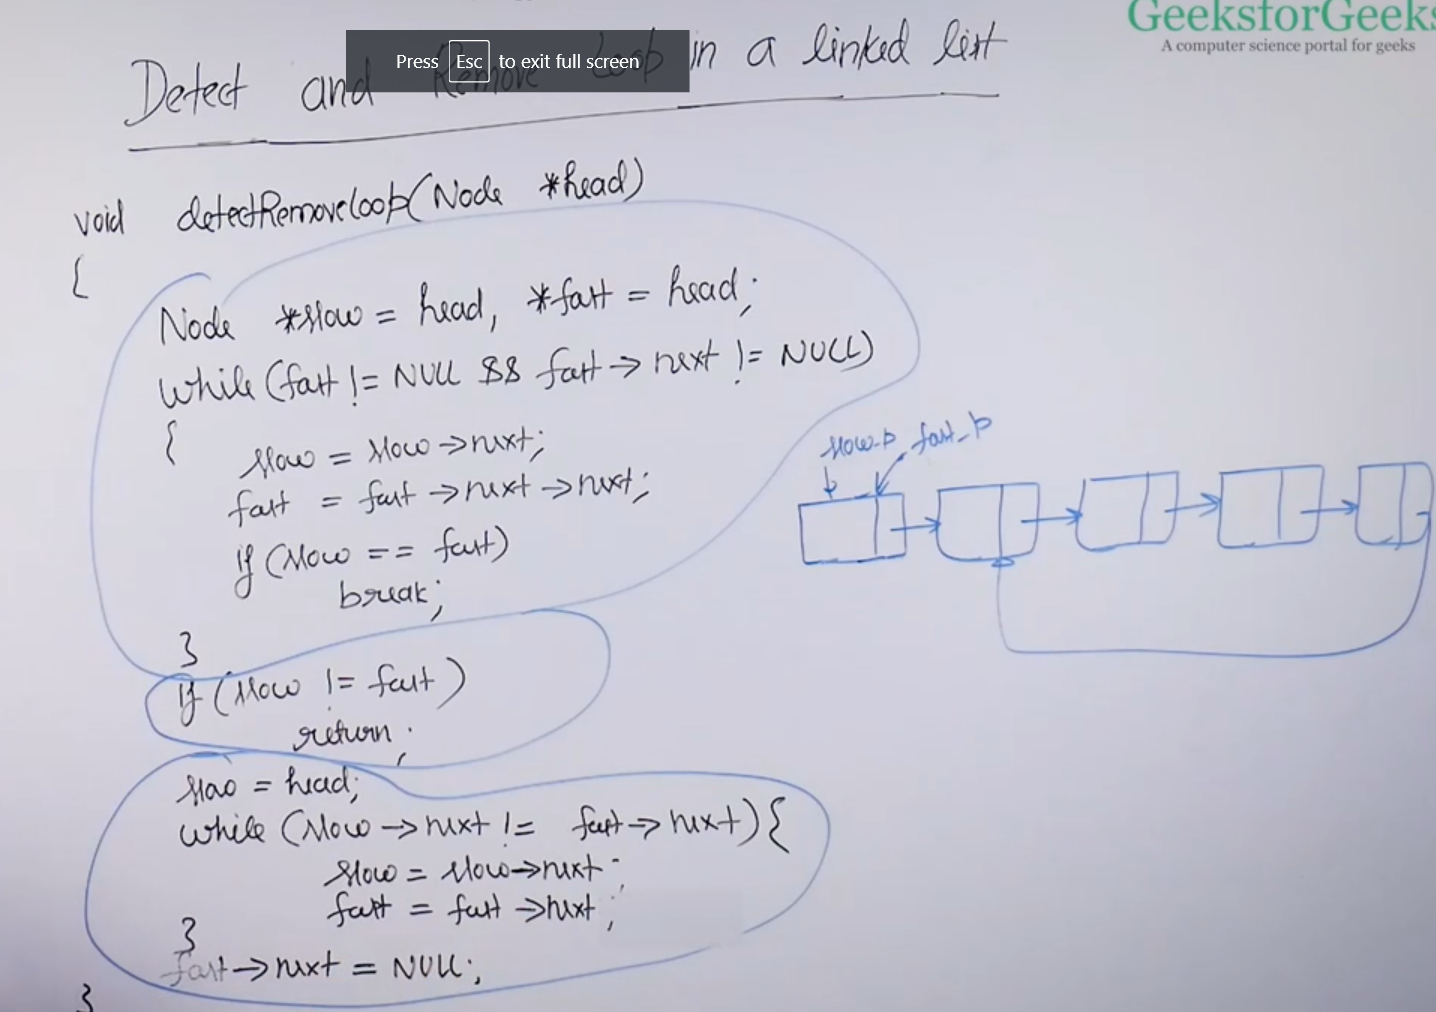 GeeksforGeeks
A computer science portal for geeks
Press Esc to exit full screen
Detect and Remove Loop in a linked list
void detectRemoveloop(Node *head)
{
Node *slow = head, *fast = head;
while (fast != NULL && fast -> next != NULL)
{
slow = slow -> next;
fast = fast -> next -> next;
if (slow == fast)
break;
}
if (slow != fast)
return;
slow = head;
while (slow -> next != fast -> next) {
slow = slow -> next;
fast = fast -> next;
}
fast -> next = NULL;
}
slow_p fast_p